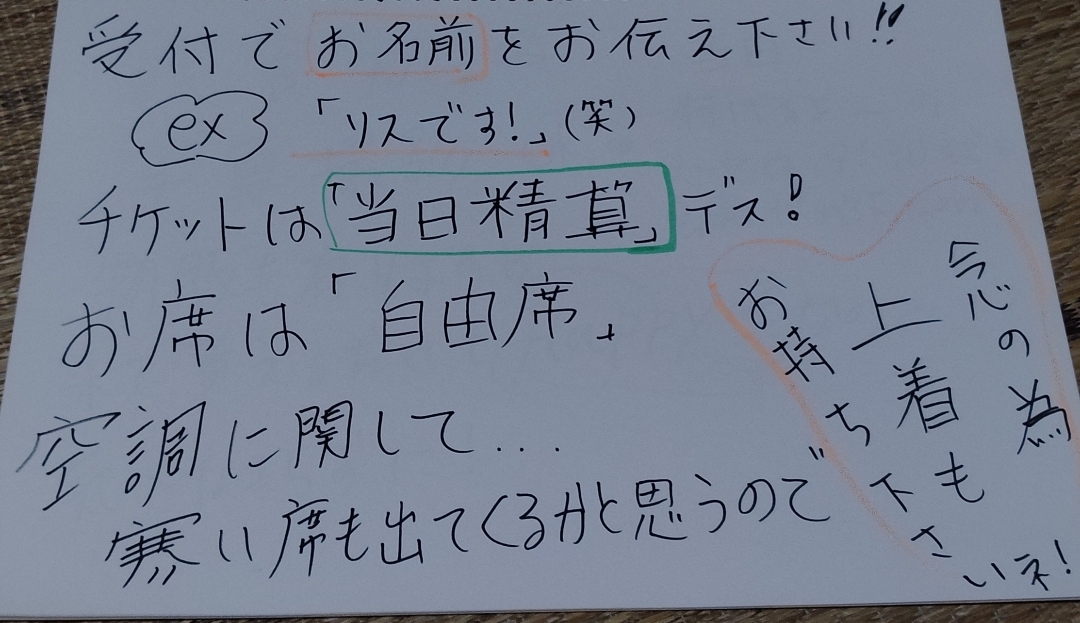 受付でお名前をお伝え下さい!!
ex 「リスです!」(笑)
チケットは「当日精算」デス!
お席は「自由席」
空調に関して...
寒い席も出てくるかと思うので
念の為
上着も
お持ち下さいネ!